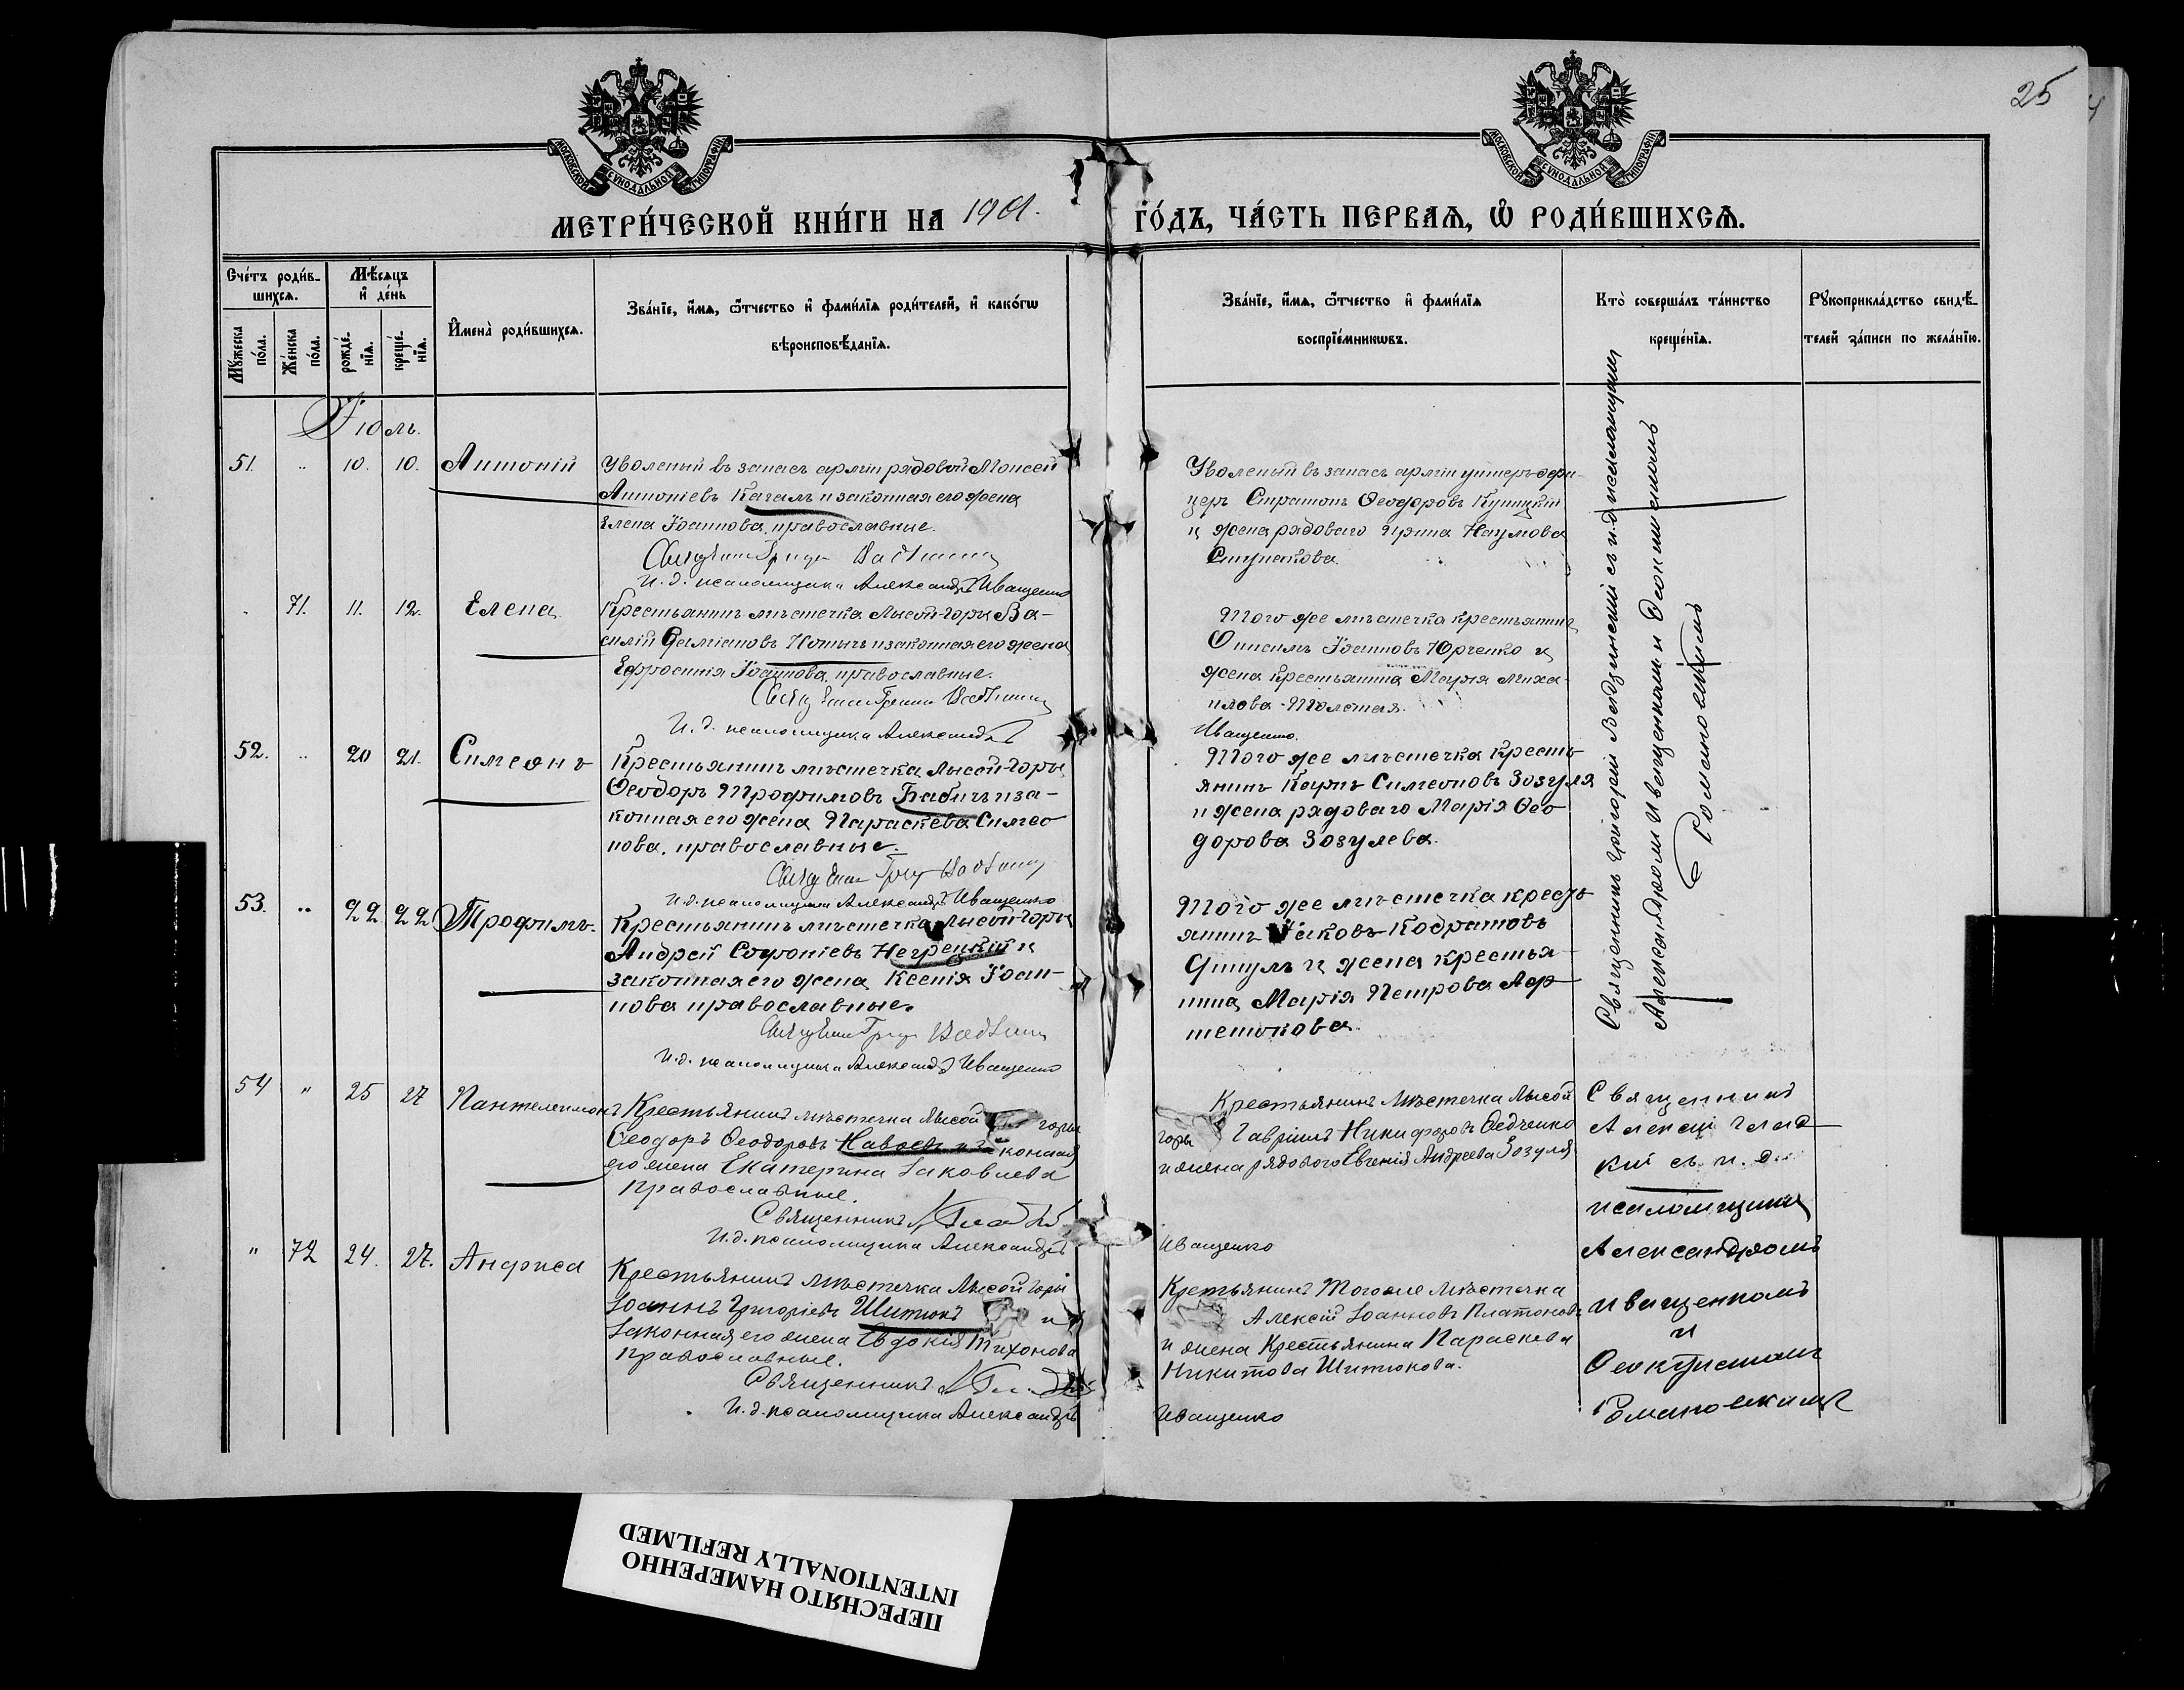 25
МОСКОВСКОЙ СѴНОДАЛЬНОЙ ТИПОГРАФІИ
МОСКОВСКОЙ СѴНОДАЛЬНОЙ ТИПОГРАФІИ
МЕТРИ́ЧЕСКОЙ КНИ́ГИ НА 1901. ГО́ДЪ, ЧА́СТЬ ПЕРВАѦ, Ѽ РОДИ́ВШИХСѦ.
Сче́тъ роди́в-
шихсѧ.
Мꙋжеска по́ла.
Же́нска по́ла.
Мѣ́сѧцъ
и҆ де́нь
рожде́-
нїѧ.
креще́-
нїѧ.
И҆мена̀ роди́вшихсѧ.
Зва́нїе, и҆́мѧ, ѻ҆́тчество и҆ фами́лїѧ роди́телей, и҆ како́гѡ
вѣроисповѣ́данїѧ.
Зва́нїе, и҆́мѧ, ѻ҆́тчество и҆ фами́лїѧ
воспрїе́мникѡвъ.
Кто̀ соверша́лъ та́инство
креще́нїѧ.
Рꙋкоприкла́дство свидѣ́-
телей за́писи по жела́нїю.
Іюль.
51. " 10. 10. Антоній
Уволеный въ запасъ арміи рядовой Моисей
Антоніевъ Качалъ и законная его жена
Елена Іоаннова, православные.
И.д. псаломщика Александръ Иващенко
Уволеный въ запасъ арміи унтеръ-офи-
церъ Стратонъ Ѳеодоровъ
и жена рядоваго Ирина Наумова
71. 11. 12. Елена
Крестьянинъ мѣстечка Лысой-горы Ва-
силій Даміановъ и законная его жена
Ефросинія Іоаннова, православные.
И.д. псаломщика Александръ
Того же мѣстечка крестьянинъ
Онисимъ Іоанновъ Юрченко и
жена крестьянина Марія Миха-
илова Толстая.
Иващенко.
52. " 20 21. Симеонъ
Крестьянинъ мѣстечка Лысой-горы
Ѳеодоръ Трофимовъ Бабичъ и за-
конная его жена Параскева Симео
нова, православные.
И.д. псаломщика Александръ Иващенко
Того же мѣстечка кресть
янинъ Карпъ Симеоновъ Зозуля
и жена рядоваго Марія Ѳео
дорова Зозулева.
53. " 22 22 Трофимъ.
Крестьянинъ мѣстечка Лысой-горы
Андрей Софроніевъ Негрецкій и
законная его жена Ксенія Іоан-
нова православные.
И.д. псаломщика Александръ Иващенко
Того же мѣстечка кресть
янинъ Іаковъ Кодратовъ
и жена крестья-
нина Марія Петрова
Священникъ Григорій съ и.д. псаломщика
Александромъ Иващенкомъ и Ѳеоктистомъ
Романовскимъ
54 " 25 27 Пантелеимонъ
Крестьянинъ мѣстечка Лысой горы
Ѳеодоръ Ѳеодоровъ и законная
его жена Екатерина Іаковлева
Православные.
Священникъ
И.д. псаломщика Александръ
Крестьянинъ Мѣстечка Лысой
горы Гавріилъ Никифоровъ Ѳедченко
и жена рядового Евгенія Андреева Зозуля
Иващенко
Священникъ
Алексій Глад
кій съ и.д.
псаломщика
Александромъ
Иващенкомъ
и
Ѳеоктистомъ
Романовскимъ
" 72 24. 27. Анфиса
Крестьянинъ мѣстечка Лысой горы
Іоаннъ Григоріевъ Шитюкъ и
законная его жена Евдокія Тихонова
Православные.
Священникъ
И.д. псаломщика Александръ
Крестьянинъ Тогоже Мѣстечка
Алексій Іоанновъ Платоновъ
и жена Крестьянина Параскева
Никитова Шитюкова.
Иващенко
ПЕРЕСНЯТО НАМЕРЕННО
INTENTIONALLY REFILMED